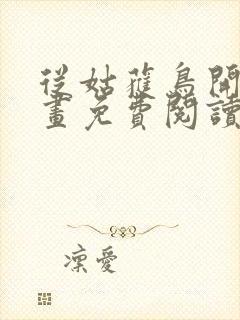 從姑獲鳥開
畫免費閱讀
凜愛